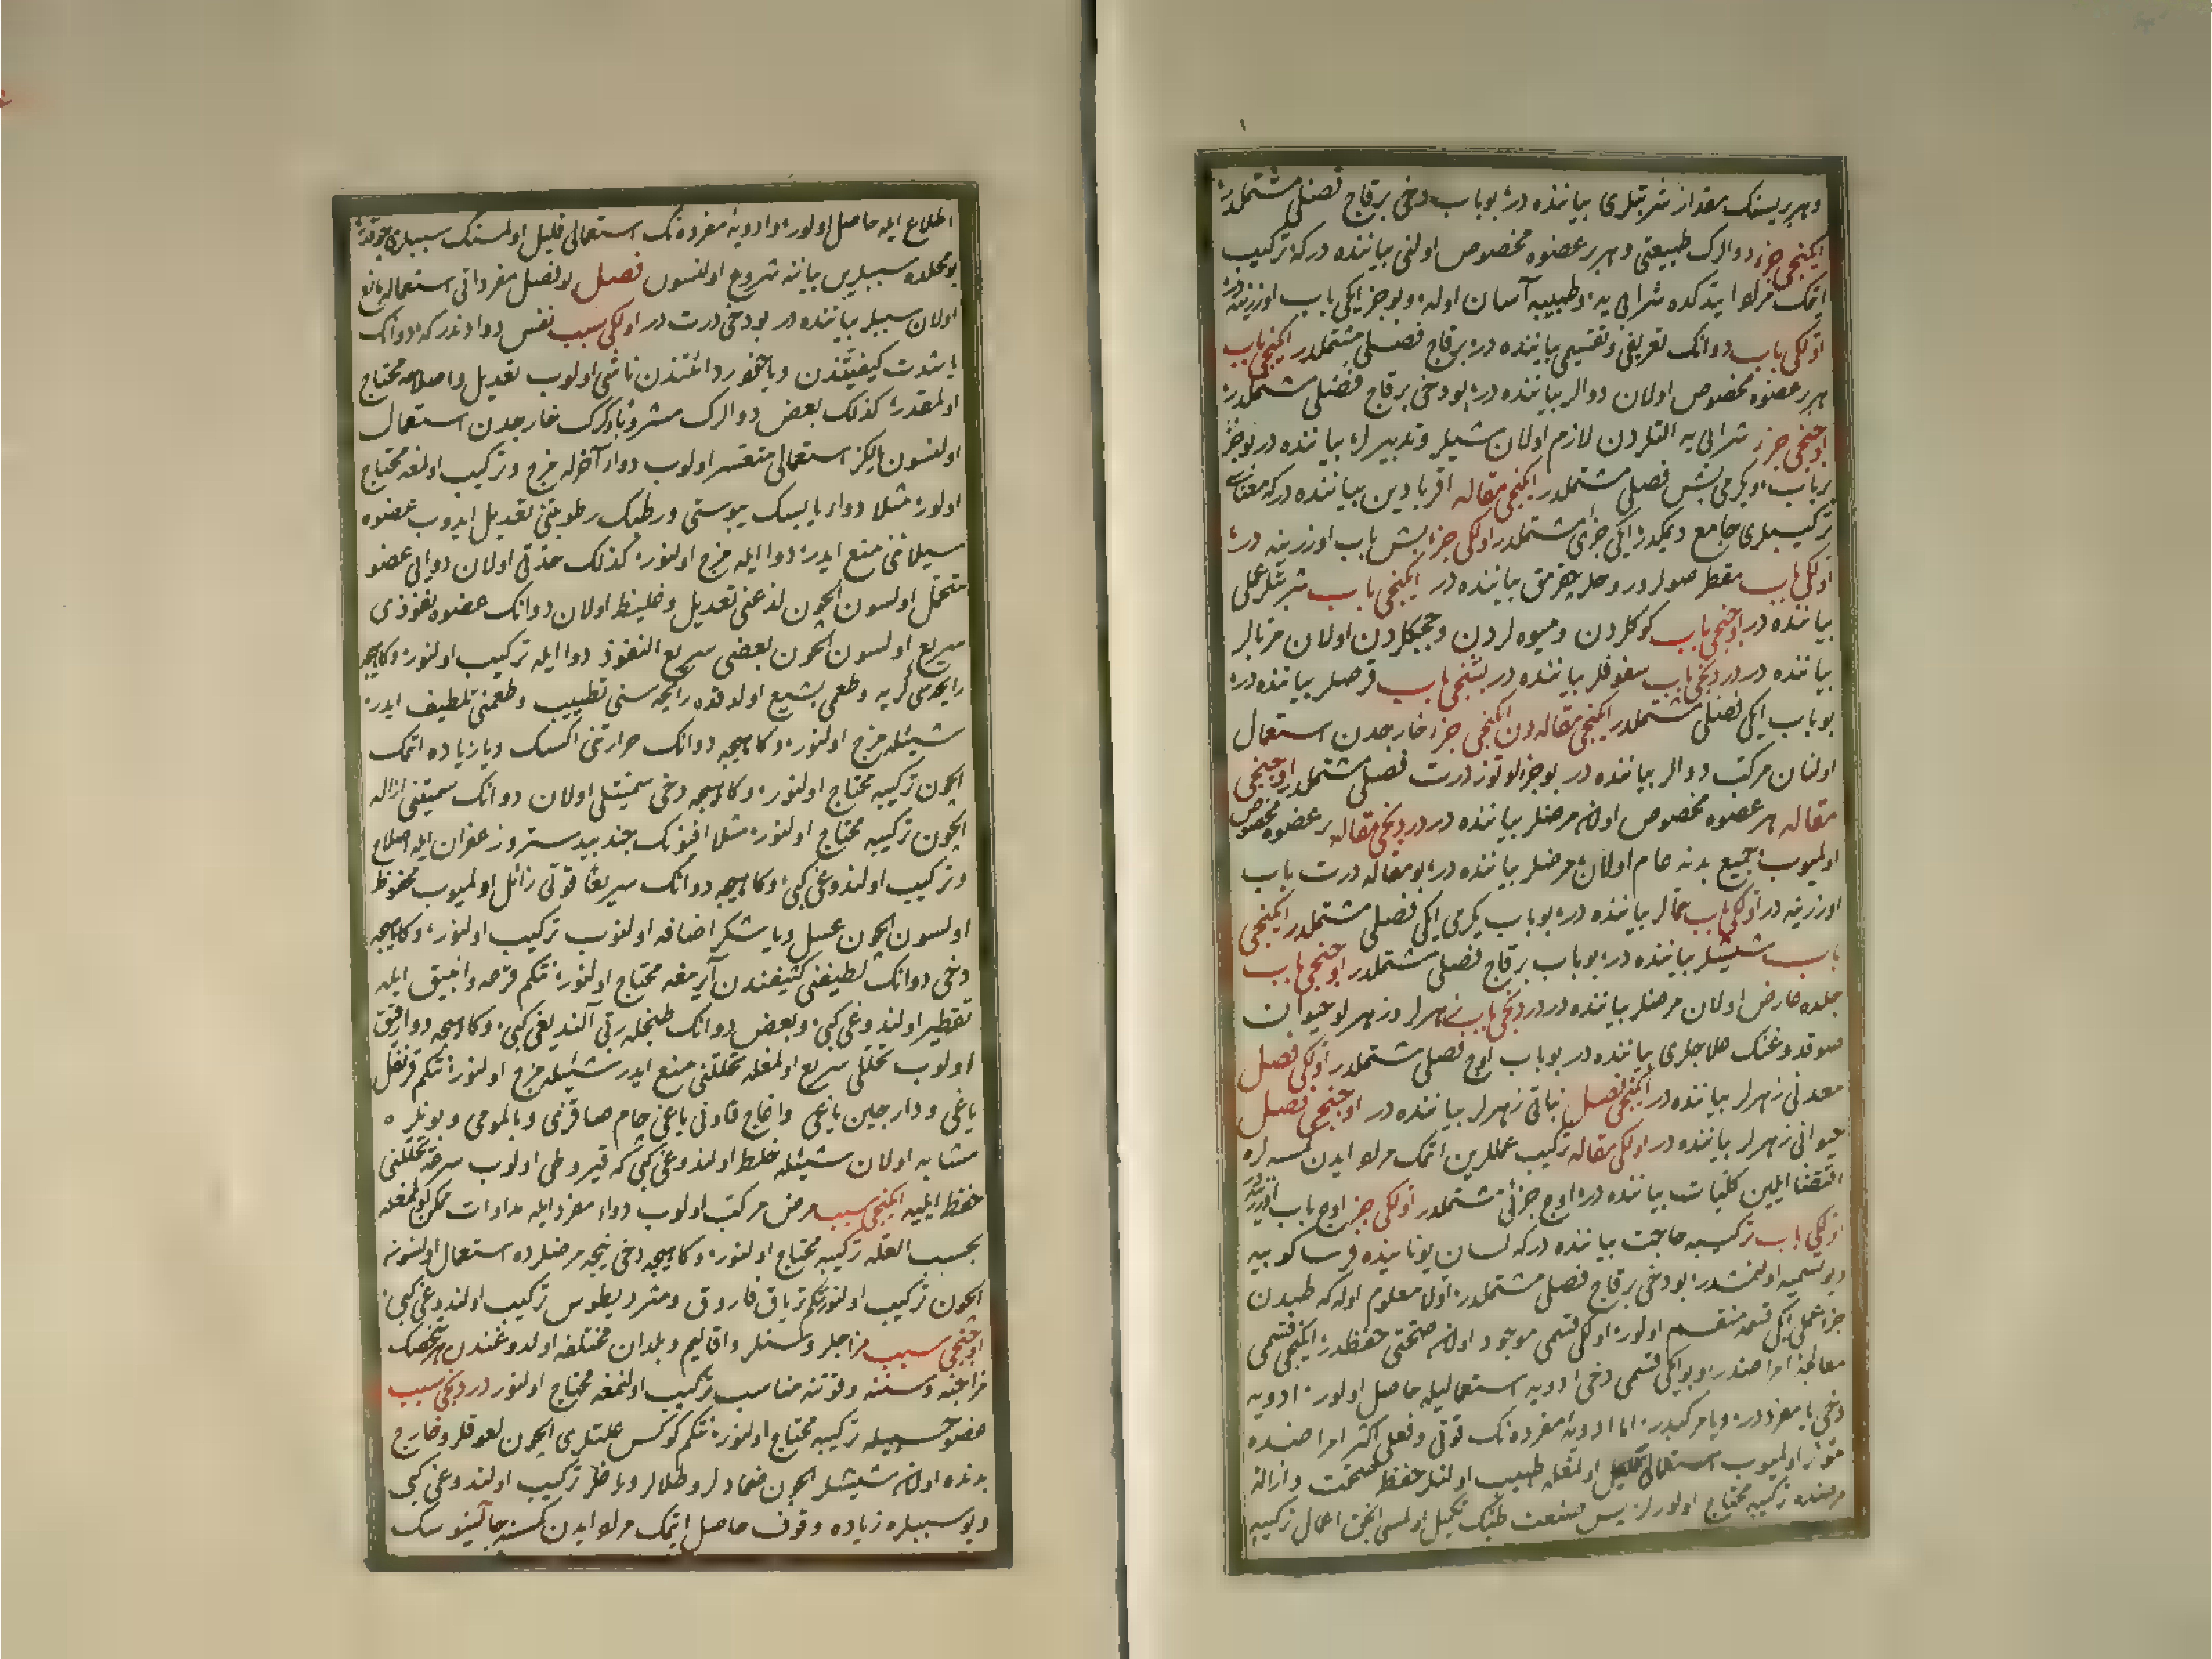 وهر بريسنك مقدار شربتلرى بياننده در بو باب دخى برقاج فصلى مشتملدر
ايكنجى جزء دوالرك طبيعتى وهر بر عضوه مخصوص اولنى بياننده دركه تركيب
اتمك مراد ايتدكده شرابى يه وطبيبه آسان اوله وبو جزء ايكى باب اوزرينه در
اولكى باب دوانك تعريفى وتقسيمى بياننده در برقاج فصلى مشتملدر ايكنجى باب
هر بر عضوه مخصوص اولان دوالر بياننده در بو دخى برقاج فصلى مشتملدر
اوجنجى جزء شرابى يه القلردن لازم اولان شيلر وتدبيرلر بياننده در بو جزء
بر باب ويكرمى بش فصلى مشتملدر ايكنجى مقاله اقرابادين بياننده دركه معناسى
تركيبلرى جامع ديمكدر ايكى جزئى مشتملدر اولكى جزء بش باب اوزرينه در
اولكى باب مقطر صولر وروحلر چقرمق بياننده در ايكنجى باب شربتلر عملى
بياننده در اوجنجى باب كوكلردن وميوه لردن وچيچكلردن اولان مربالر
بياننده در دردنجى باب سفوفلر بياننده در بشنجى باب قرصلر بياننده در
بو باب ايكى فصلى مشتملدر ايكنجى مقاله دن ايكنجى جزء خارجدن استعمال
اولنان مركب دوالر بياننده در بو جزء اوتوز درت فصلى مشتملدر اوجنجى
مقاله هر عضوه مخصوص اولان مرضلر بياننده در دردنجى مقاله بر عضوه مخصوص
اولميوب جميع بدنه عام اولان مرضلر بياننده در بو مقاله درت باب
اوزرينه در اولكى باب حمالر بياننده در بو باب يكرمى ايكى فصلى مشتملدر ايكنجى
باب شيشلر بياننده در بو باب برقاج فصلى مشتملدر اوجنجى باب
جلده عارض اولان مرضلر بياننده در دردنجى باب زهرلر وزهرلو حيوان
صوقدوغنك علاجلرى بياننده در بو باب اوچ فصلى مشتملدر اولكى فصل
معدنى زهرلر بياننده در ايكنجى فصل نباتى زهرلر بياننده در اوجنجى فصل
حيوانى زهرلر بياننده در اولكى مقاله تركيب عمللرين اتمك مراد ايدن كمسه لره
اقتضا ايلين كليات بياننده در اوچ جزئى مشتملدر اولكى جزء اوچ باب اوزرينه در
اولكى باب تركيبه حاجت بياننده دركه لسان يونانيده
ديو تسميه اولنمشدر بو دخى برقاج فصلى مشتملدر اولا معلوم اوله كه طبدن
جزء عملى ايكى قسمه منقسم اولور اولكى قسمى موجود اولان صحتى حفظدر ايكنجى قسمى
معالجه امراضدر وبو ايكى قسمى دخى ادويه استعماليله حاصل اولور ادويه
دخى يا مفرددر ويا مركبدر اما ادويه مفرده نك قوتى وفعلى اكثر امراضده
مؤثر اولميوب استعمالى قليل اولمغله طبيب اولنلر حفظ صحت وازاله
مرضده تركيبه محتاج اولورلر پس صنعت طبك تكميل اولمسى ايچون اعمال تركيبه
اطلاع ايله حاصل اولور وادويه مفرده نك استعمالى قليل اولمسنك سببلرى چوقدر
بو محلده سببلرين بيانه شروع اولنسون فصل بو فصل مفرداتى استعماله مانع
اولان سببلر بياننده در بو دخى درت در اولكى سبب نفس دوادندر كه دوانك
يا شدت كيفيتندن ويا خود ردائتندن ناشى اولوب تعديل واصلاحه محتاج
اولمقدر كذلك بعض دوالرك مشروبا وكرك خارجدن استعمال
اولنسون يالكز استعمالى متعسر اولوب دواء آخرله مزج وتركيب اولنمغه محتاج
اولور مثلا دواء يابسك يبوستى ورطبك رطوبتنى تعديل ايدوب عضوه
سيلاننى منع ايدر دوا ايله مزج اولنور كذلك حدتى اولان دوايى عضو
متحمل اولسون ايچون لذعنى تعديل وغليظ اولان دوانك عضوه نفوذى
سريع اولسون ايچون بعضى سريع النفوذ دوا ايله تركيب اولنور وكاهيجه
رايحه سى كريه وطعمى بشيع اولدقده رايحه سنى تطييب وطعمنى تلطيف ايدر
شيئله مزج اولنور وكاهيجه دوانك حرارتنى اكسك ويا زياده اتمك
ايچون تركيبه محتاج اولنور وكاهيجه دخى سميتلى اولان دوانك سميتنى ازاله
ايچون تركيبه محتاج اولنور مثلا افيونك جندبيدستر وزعفران ايله اصلاح
وتركيب اولندوغى كبى وكاهيجه دوانك سريعا قوتى زائل اولميوب محفوظ
اولسون ايچون عسل ويا شكر اضافه اولنوب تركيب اولنور وكاهيجه
دخى دوانك لطيفنى كثيفندن آيرمغه محتاج اولنور نتكم قرعه وانبيق ايله
تقطير اولندوغى كبى وبعض دوانك طبخله ربى آلنديغى كبى وكاهيجه دوا رقيق
اولوب تحللى سريع اولمغله تحللنى منع ايدر شيئله مزج اولنور نتكم قرنفل
ياغى ودارچين ياغى واغاج قاونى ياغى جام صاقزى وبالمومى وبونلره
مشابه اولان شيئله خلط اولندوغى كبى كه قيروطى اولوب سرعة تحللنى
حفظ ايليه ايكنجى سبب مرض مركب اولوب دواء مفرد ايله مداوات ممكن اولمغله
بحسب العله تركيبه محتاج اولنور وكاهيجه دخى نيجه مرضلرده استعمال اولنمه
ايچون تركيب اولنور نتكم ترياق فاروق ومثروديطوس تركيب اولندوغى كبى
اوجنجى سبب مزاجلر وسنلر واقاليم وبلدان مختلفه اولدوغندن هر شخصك
مزاجنه وسننه وقوتنه مناسب تركيب اولنمغه محتاج اولنور دردنجى سبب
عضو حسبيله تركيبه محتاج اولنور نتكم كوكس علتلرى ايچون لعوقلر وخارج
بدنده اولان شيشلر ايچون ضمادلر وطلالر تركيب اولندوغى كبى
وبو سببلره زياده وقوف حاصل اتمك مراد ايدن كمسنه جالينوسك